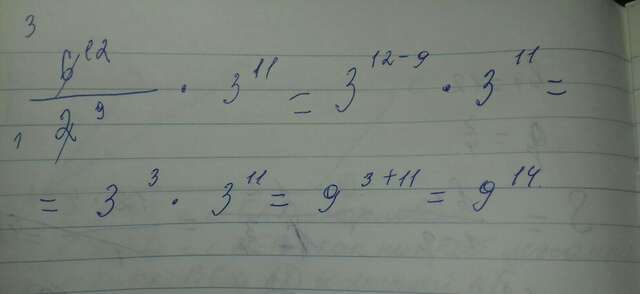 3
6^12 / 2^9 · 3^11 = 3^12-9 · 3^11 =
1
= 3^3 · 3^11 = 9^3+11 = 9^14.